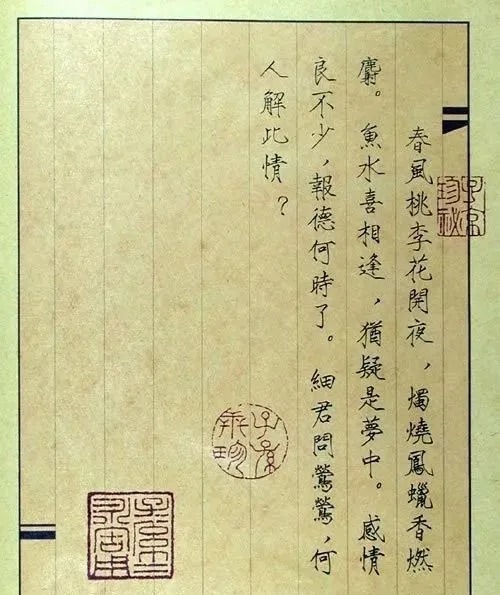 子京珍祕
春風桃李花開夜，燭燒鳳蠟香燃
麝。魚水喜相逢，猶疑是夢中。感情
良不少，報德何時了。細君問鶯鶯，何
人解此情？